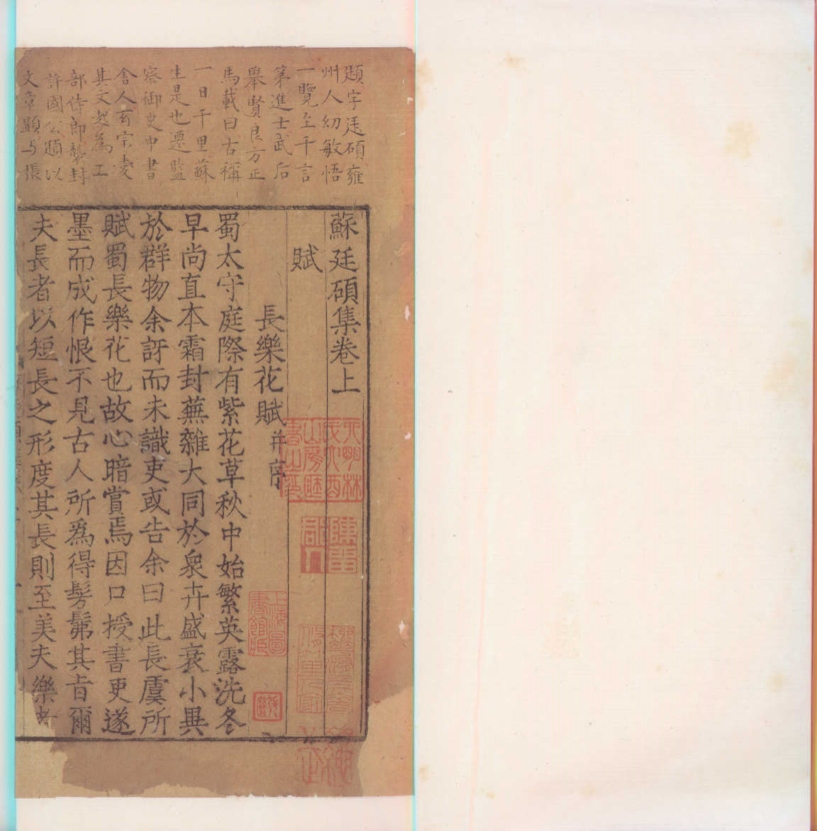 題字廷碩雍
州人幼敏悟
一覽至千言
第進士武后
舉賢良方正
馬載曰古稱
一日千里蘇
生是也遷監
察御史中書
舍人玄宗愛
其文曰為工
部侍郎襲封
許國公題以
文章顯與張
蘇廷碩集卷上
賦
長樂花賦并序
蜀太守庭際有紫花草秋中始繁英露洗冬
早尚直本霜封蕪雜大同於衆卉盛衰小異
於群物余訝而未識吏或告余曰此長虞所
賦蜀長樂花也故心暗賞焉因口授書吏遂
墨而成作恨不見古人所爲得髣髴其旨爾
夫長者以短長之形度其長則至美夫樂者